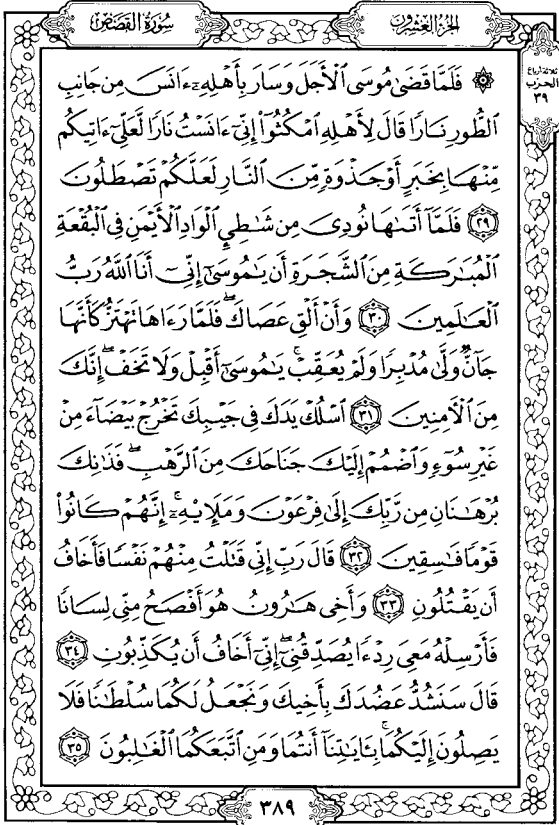 سُورَةُ القَصَصِ
الجُزْءُ العِشْرُونَ
ثلاثة أرباع
الحزب
٣٩
۞ فَلَمَّا قَضَىٰ مُوسَى ٱلْأَجَلَ وَسَارَ بِأَهْلِهِۦٓ ءَانَسَ مِن جَانِبِ
ٱلطُّورِ نَارًا قَالَ لِأَهْلِهِ ٱمْكُثُوٓا۟ إِنِّىٓ ءَانَسْتُ نَارًا لَّعَلِّىٓ ءَاتِيكُم
مِّنْهَا بِخَبَرٍ أَوْ جَذْوَةٍ مِّنَ ٱلنَّارِ لَعَلَّكُمْ تَصْطَلُونَ
٢٩ فَلَمَّآ أَتَىٰهَا نُودِىَ مِن شَـٰطِئِ ٱلْوَادِ ٱلْأَيْمَنِ فِى ٱلْبُقْعَةِ
ٱلْمُبَـٰرَكَةِ مِنَ ٱلشَّجَرَةِ أَن يَـٰمُوسَىٰٓ إِنِّىٓ أَنَا ٱللَّهُ رَبُّ
ٱلْعَـٰلَمِينَ ٣٠ وَأَنْ أَلْقِ عَصَاكَ ۖ فَلَمَّا رَءَاهَا تَهْتَزُّ كَأَنَّهَا
جَآنٌّ وَلَّىٰ مُدْبِرًا وَلَمْ يُعَقِّبْ ۚ يَـٰمُوسَىٰٓ أَقْبِلْ وَلَا تَخَفْ ۖ إِنَّكَ
مِنَ ٱلْـَٔامِنِينَ ٣١ ٱسْلُكْ يَدَكَ فِى جَيْبِكَ تَخْرُجْ بَيْضَآءَ مِنْ
غَيْرِ سُوٓءٍ وَٱضْمُمْ إِلَيْكَ جَنَاحَكَ مِنَ ٱلرَّهْبِ ۖ فَذَٰنِكَ
بُرْهَـٰنَانِ مِن رَّبِّكَ إِلَىٰ فِرْعَوْنَ وَمَلَإِي۟هِۦٓ ۚ إِنَّهُمْ كَانُوا۟
قَوْمًا فَـٰسِقِينَ ٣٢ قَالَ رَبِّ إِنِّى قَتَلْتُ مِنْهُمْ نَفْسًا فَأَخَافُ
أَن يَقْتُلُونِ ٣٣ وَأَخِى هَـٰرُونُ هُوَ أَفْصَحُ مِنِّى لِسَانًا
فَأَرْسِلْهُ مَعِىَ رِدْءًا يُصَدِّقُنِىٓ ۖ إِنِّىٓ أَخَافُ أَن يُكَذِّبُونِ ٣٤
قَالَ سَنَشُدُّ عَضُدَكَ بِأَخِيكَ وَنَجْعَلُ لَكُمَا سُلْطَـٰنًا فَلَا
يَصِلُونَ إِلَيْكُمَا ۚ بِـَٔايَـٰتِنَآ أَنتُمَا وَمَنِ ٱتَّبَعَكُمَا ٱلْغَـٰلِبُونَ ٣٥
٣٨٩